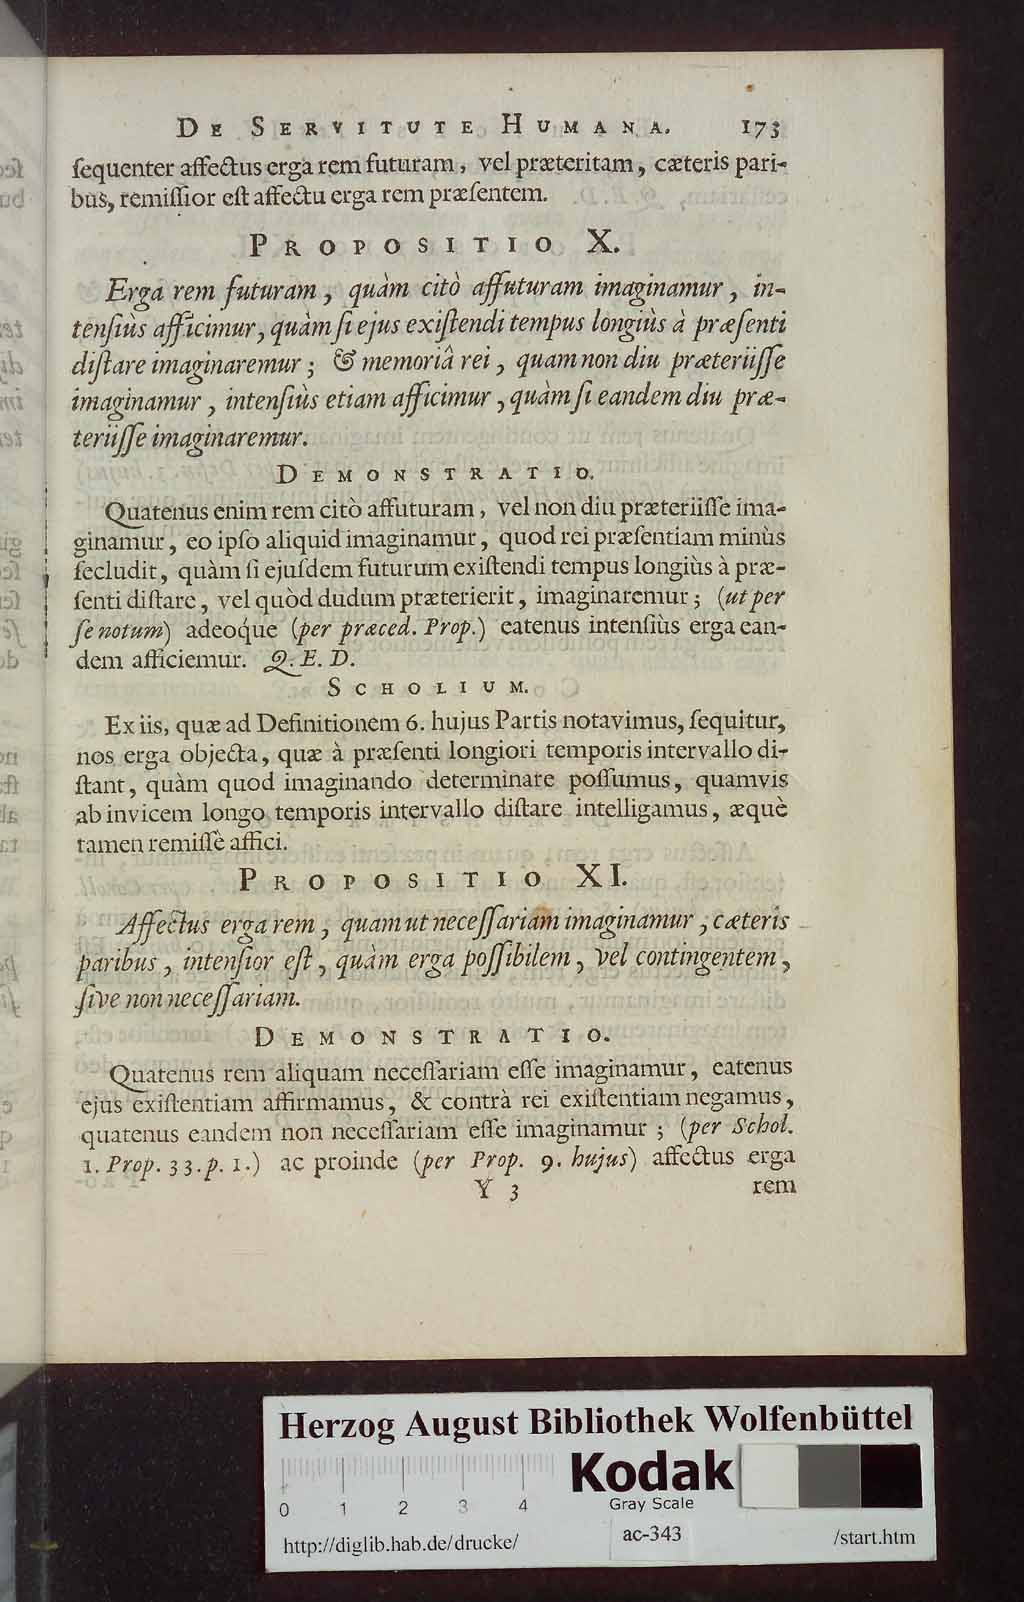 De Servitute Humana. 173
ſequenter affectus erga rem futuram, vel præteritam, cæteris pari-
bus, remiſſior eſt affectu erga rem præſentem.
Propositio X.
Erga rem futuram, quàm citò affuturam imaginamur, in-
tenſiùs afficimur, quàm ſi ejus exiſtendi tempus longiùs à præſenti
diſtare imaginaremur; & memoriâ rei, quam non diu præteriiſſe
imaginamur, intenſiùs etiam afficimur, quàm ſi eandem diu præ-
teriiſſe imaginaremur.
Demonstratio.
Quatenus enim rem citò affuturam, vel non diu præteriiſſe ima-
ginamur, eo ipſo aliquid imaginamur, quod rei præſentiam minùs
ſecludit, quàm ſi ejuſdem futurum exiſtendi tempus longiùs à præ-
ſenti diſtare, vel quòd dudum præterierit, imaginaremur; (ut per
ſe notum) adeoque (per præced. Prop.) eatenus intenſiùs erga ean-
dem afficiemur. Q. E. D.
Scholium.
Ex iis, quæ ad Definitionem 6. hujus Partis notavimus, ſequitur,
nos erga objecta, quæ à præſenti longiori temporis intervallo di-
ſtant, quàm quod imaginando determinare poſſumus, quamvis
ab invicem longo temporis intervallo diſtare intelligamus, æquè
tamen remiſſè affici.
Propositio XI.
Affectus erga rem, quam ut neceſſariam imaginamur, cæteris
paribus, intenſior eſt, quàm erga poſſibilem, vel contingentem,
ſive non neceſſariam.
Demonstratio.
Quatenus rem aliquam neceſſariam eſſe imaginamur, eatenus
ejus exiſtentiam affirmamus, & contrà rei exiſtentiam negamus,
quatenus eandem non neceſſariam eſſe imaginamur; (per Schol.
1. Prop. 33. p. 1.) ac proinde (per Prop. 9. hujus) affectus erga
Y 3 rem
Herzog August Bibliothek Wolfenbüttel
Kodak
Gray Scale
0 1 2 3 4
http://diglib.hab.de/drucke/ ac-343 /start.htm